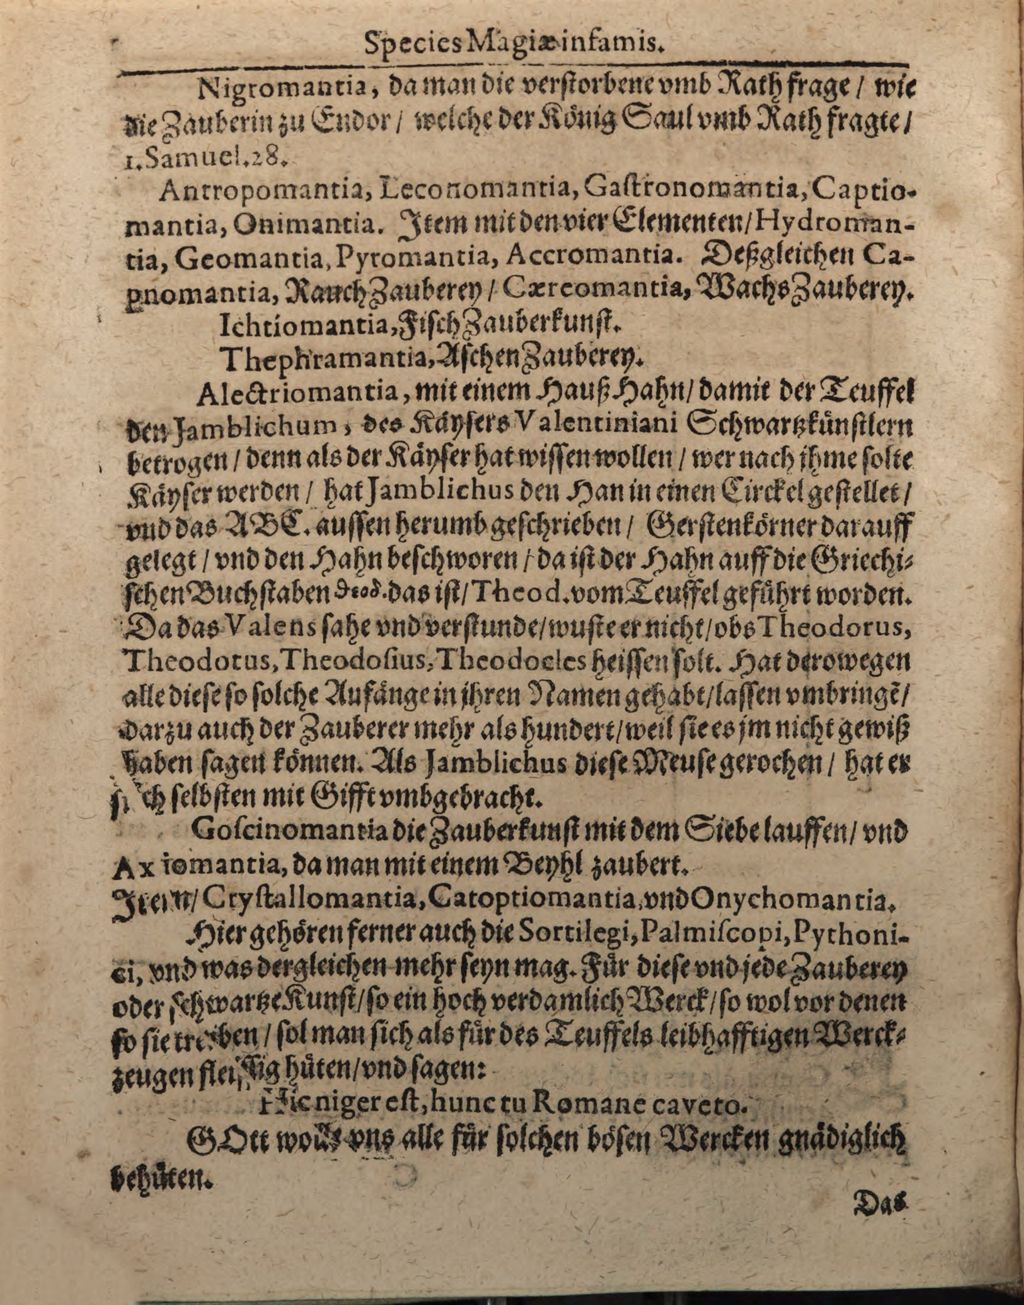 Species Magiæ infamis.
Nigromantia, da man die verstorbene vmb Rath frage / wie
die Zauberin zu Endor / welche der König Saul vmb Rath fragte /
1. Samuel. 28.
Antropomantia, Leconomantia, Gastronomantia, Captio-
mantia, Onimantia. Item mit den vier Elementen / Hydroman-
tia, Geomantia, Pyromantia, Accromantia. Deßgleichen Ca-
pnomantia, Rauch Zauberey / Cæreomantia, Wachs Zauberey.
Ichtiomantia, Fisch Zauberkunst.
Thephramantia, Aschen Zauberey.
Alectriomantia, mit einem Hauß Hahn / damit der Teuffel
den Jamblichum, des Käysers Valentiniani Schwartzkünstlern
betrogen / denn als der Käyser hat wissen wollen / wer nach ihme solte
Käyser werden / hat Jamblichus den Han in einen Circkel gestellet /
vnd das ABC. aussen herumb geschrieben / Gerstenkörner darauff
gelegt / vnd den Hahn beschworen / da ist der Hahn auff die Griechi-
schen Buchstaben θεοδ. das ist / Theod. vom Teuffel geführt worden.
Da das Valens sahe vnd verstunde / wuste er nicht / obs Theodorus,
Theodotus, Theodosius, Theodocles heissen solt. Hat derowegen
alle diese so solche Anfänge in ihren Namen gehabt / lassen vmbringē /
darzu auch der Zauberer mehr als hundert / weil sie es jm nicht gewiß
haben sagen können. Als Jamblichus diese Meuse gerochen / hat er
sich selbsten mit Gifft vmbgebracht.
Goscinomantia die Zauberkunst mit dem Siebe lauffen / vnd
Axiomantia, da man mit einem Beyhl zaubert.
Item / Crystallomantia, Catoptiomantia, vnd Onychomantia.
Hier gehören ferner auch die Sortilegi, Palmiscopi, Pythoni-
ci, vnd was dergleichen mehr seyn mag. Für diese vnd jede Zauberey
oder schwartze Kunst / so ein hoch verdamlich Werck / so wol vor denen
so sie treiben / sol man sich als für des Teuffels leibhafftigen Werck-
zeugen fleissig hüten / vnd sagen:
Hic niger est, hunc tu Romane caveto.
GOtt woll vns alle für solchen bösen Wercken gnädiglich
behüten.
Das